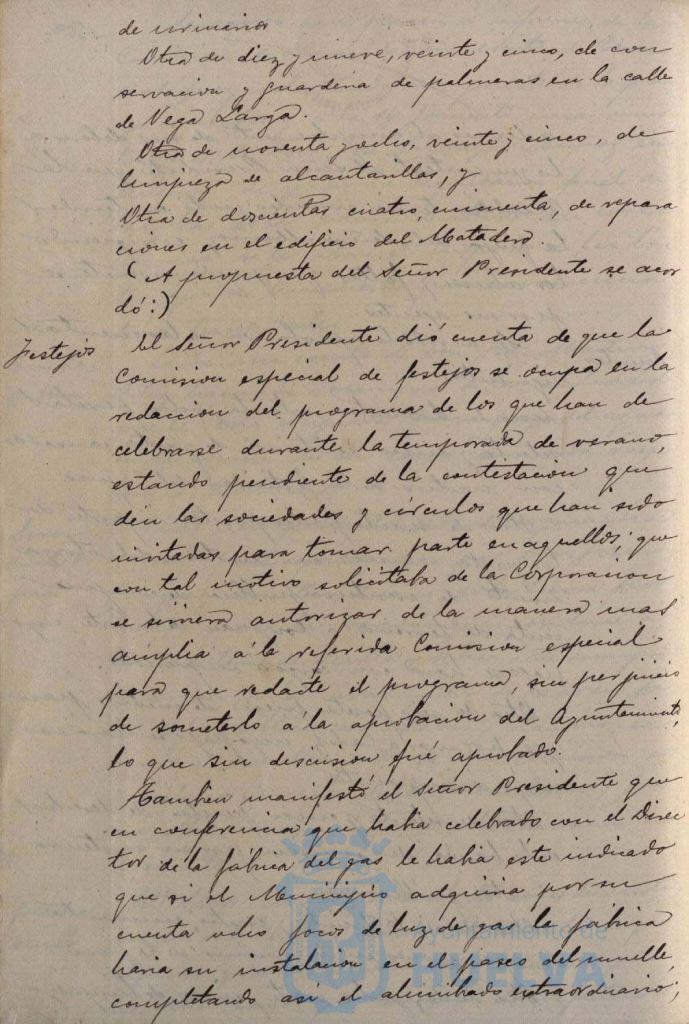 de urinarios
Otra de diez y nueve, veinte y cinco, de con
servacion y guarderia de palmeras en la calle
de Vega Larga.
Otra de noventa y ocho, veinte y cinco, de
limpieza de alcantarillas, y
Otra de doscientas cuatro, cincuenta, de repara
ciones en el edificio del Matadero.
(A propuesta del Señor Presidente se acor
dó:)
Festejos
El Señor Presidente dió cuenta de que la
Comision especial de festejos se ocupa en la
redaccion del programa de los que han de
celebrarse durante la temporada de verano,
estando pendiente de la contestacion que
den las sociedades y círculos que han sido
invitadas para tomar parte en aquellos; que
con tal motivo solicitaba de la Corporacion
se sirviera autorizar de la manera mas
amplia á la referida Comision especial
para que redacte el programa, sin perjuicio
de someterlo á la aprobacion del Ayuntamiento,
lo que sin discusion fué aprobado.
Tambien manifestó el Señor Presidente que
en conferencia que habia celebrado con el Direc
tor de la fábrica del gas le habia éste indicado
que si el Municipio adquiria por su
cuenta ocho focos de luz de gas la fábrica
haria su instalacion en el paseo del muelle,
completando así el alumbrado extraordinario;
Ayuntamiento de
HUELVA